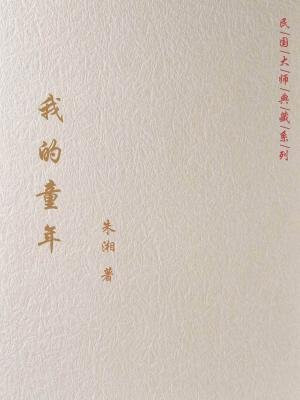 民国大师典藏系列
我的童年
朱湘 著